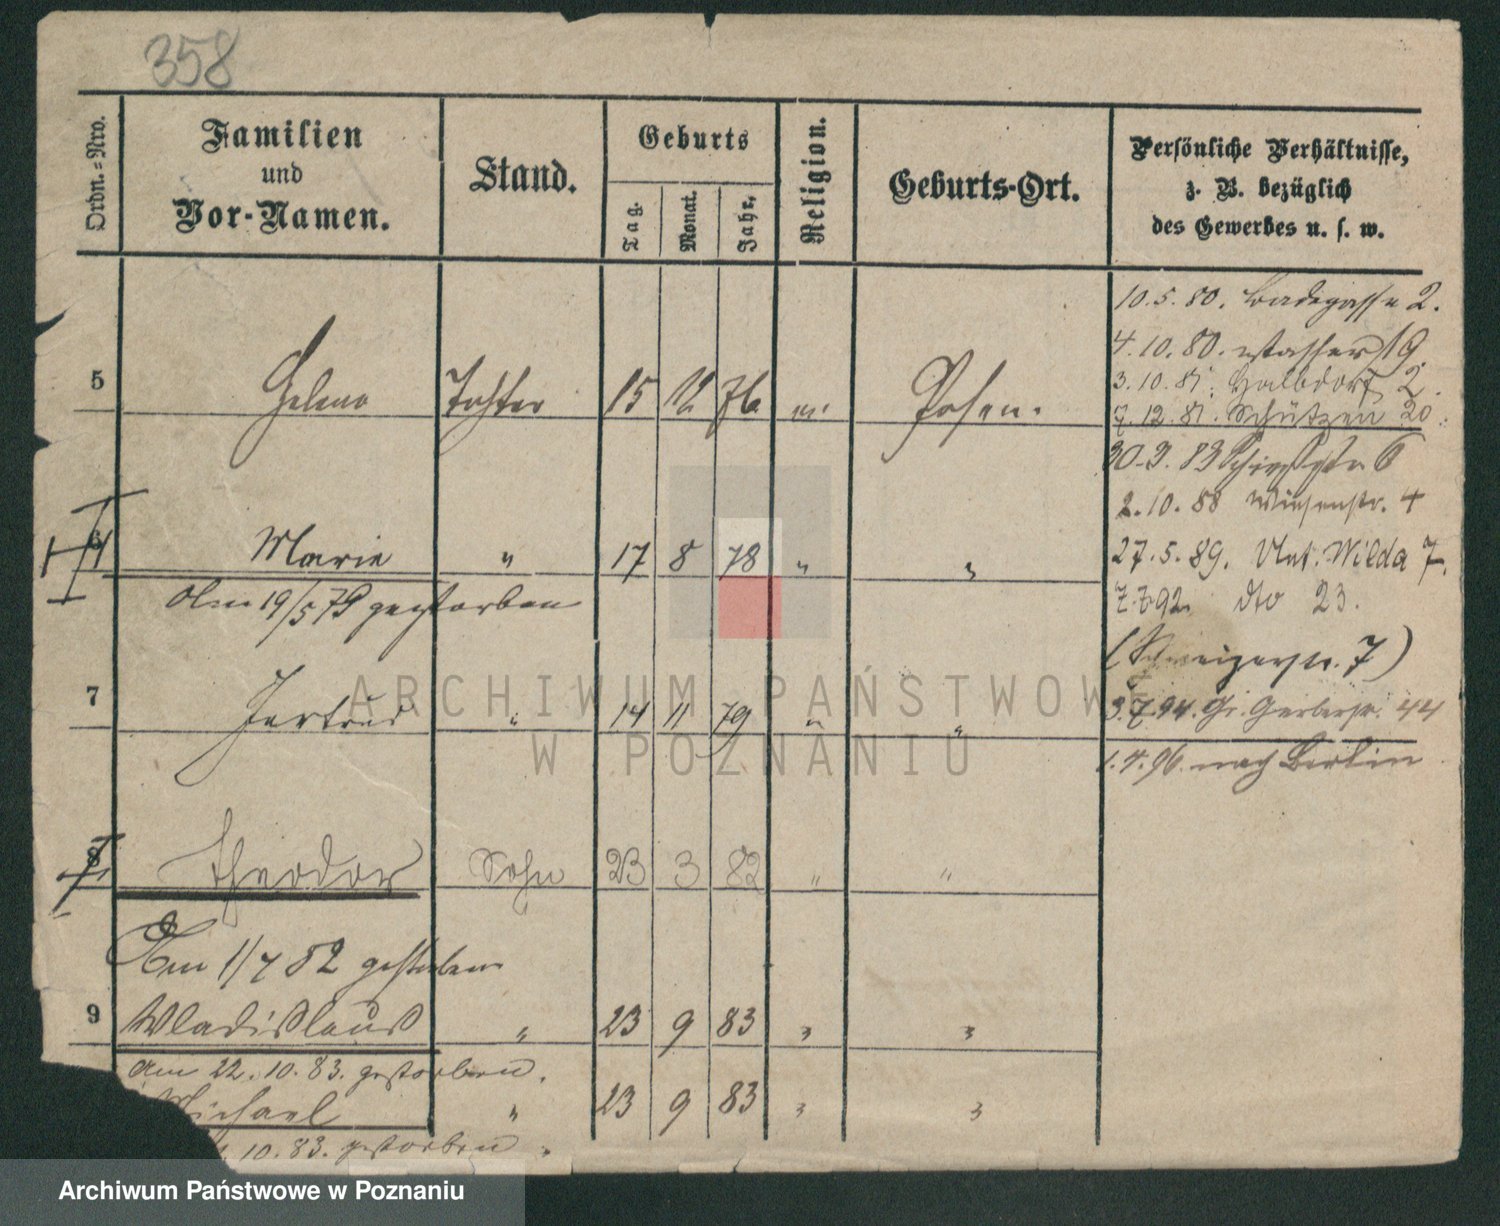 358
Ordn.=Nro.
Familien
und
Vor-Namen.
Stand.
Geburts
Tag.
Monat.
Jahr.
Religion.
Geburts-Ort.
Persönliche Verhältnisse,
z. B. bezüglich
des Gewerbes u. s. w.
10. 5. 80. Badegasse 2.
4. 10. 80. Wasser 19
3. 10. 81. Halbdorf 2.
7. 12. 81. Schützen 20
5 Helene Tochter 15 12 76 Posen.
30. 3. 83 Schießstr 6
2. 10. 88 Wiesenstr. 4
6 Marie " 17 8 78 " "
27. 5. 89. Unt. Wilda 7.
Am 19/5 79 gestorben
7. 7. 92. dto 23.
7 Gertrud " 14 11 79 " "
3. 7. 94. Gr. Gerberstr. 44
1. 4. 96. nach Berlin
8 Theodor Sohn 23 3 82 " "
Am 1/7 82 gestorben
9 Wladislaus " 23 9 83 " "
Am 22. 10. 83. gestorben.
Michael " 23 9 83 " "
10. 83. gestorben.
ARCHIWUM PAŃSTWOWE
W POZNANIU
Archiwum Państwowe w Poznaniu